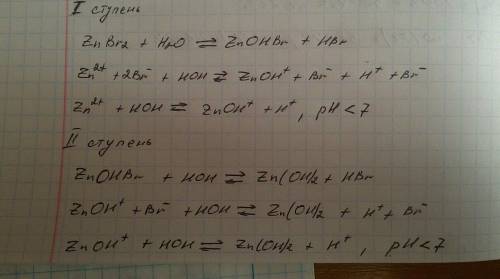 I ступень
ZnBr₂ + H₂O ⇄ ZnOHBr + HBr
Zn²⁺ + 2Br⁻ + HOH ⇄ ZnOH⁺ + Br⁻ + H⁺ + Br⁻
Zn²⁺ + HOH ⇄ ZnOH⁺ + H⁺, pH < 7
II ступень
ZnOHBr + HOH ⇄ Zn(OH)₂ + HBr
ZnOH⁺ + Br⁻ + HOH ⇄ Zn(OH)₂ + H⁺ + Br⁻
ZnOH⁺ + HOH ⇄ Zn(OH)₂ + H⁺, pH < 7